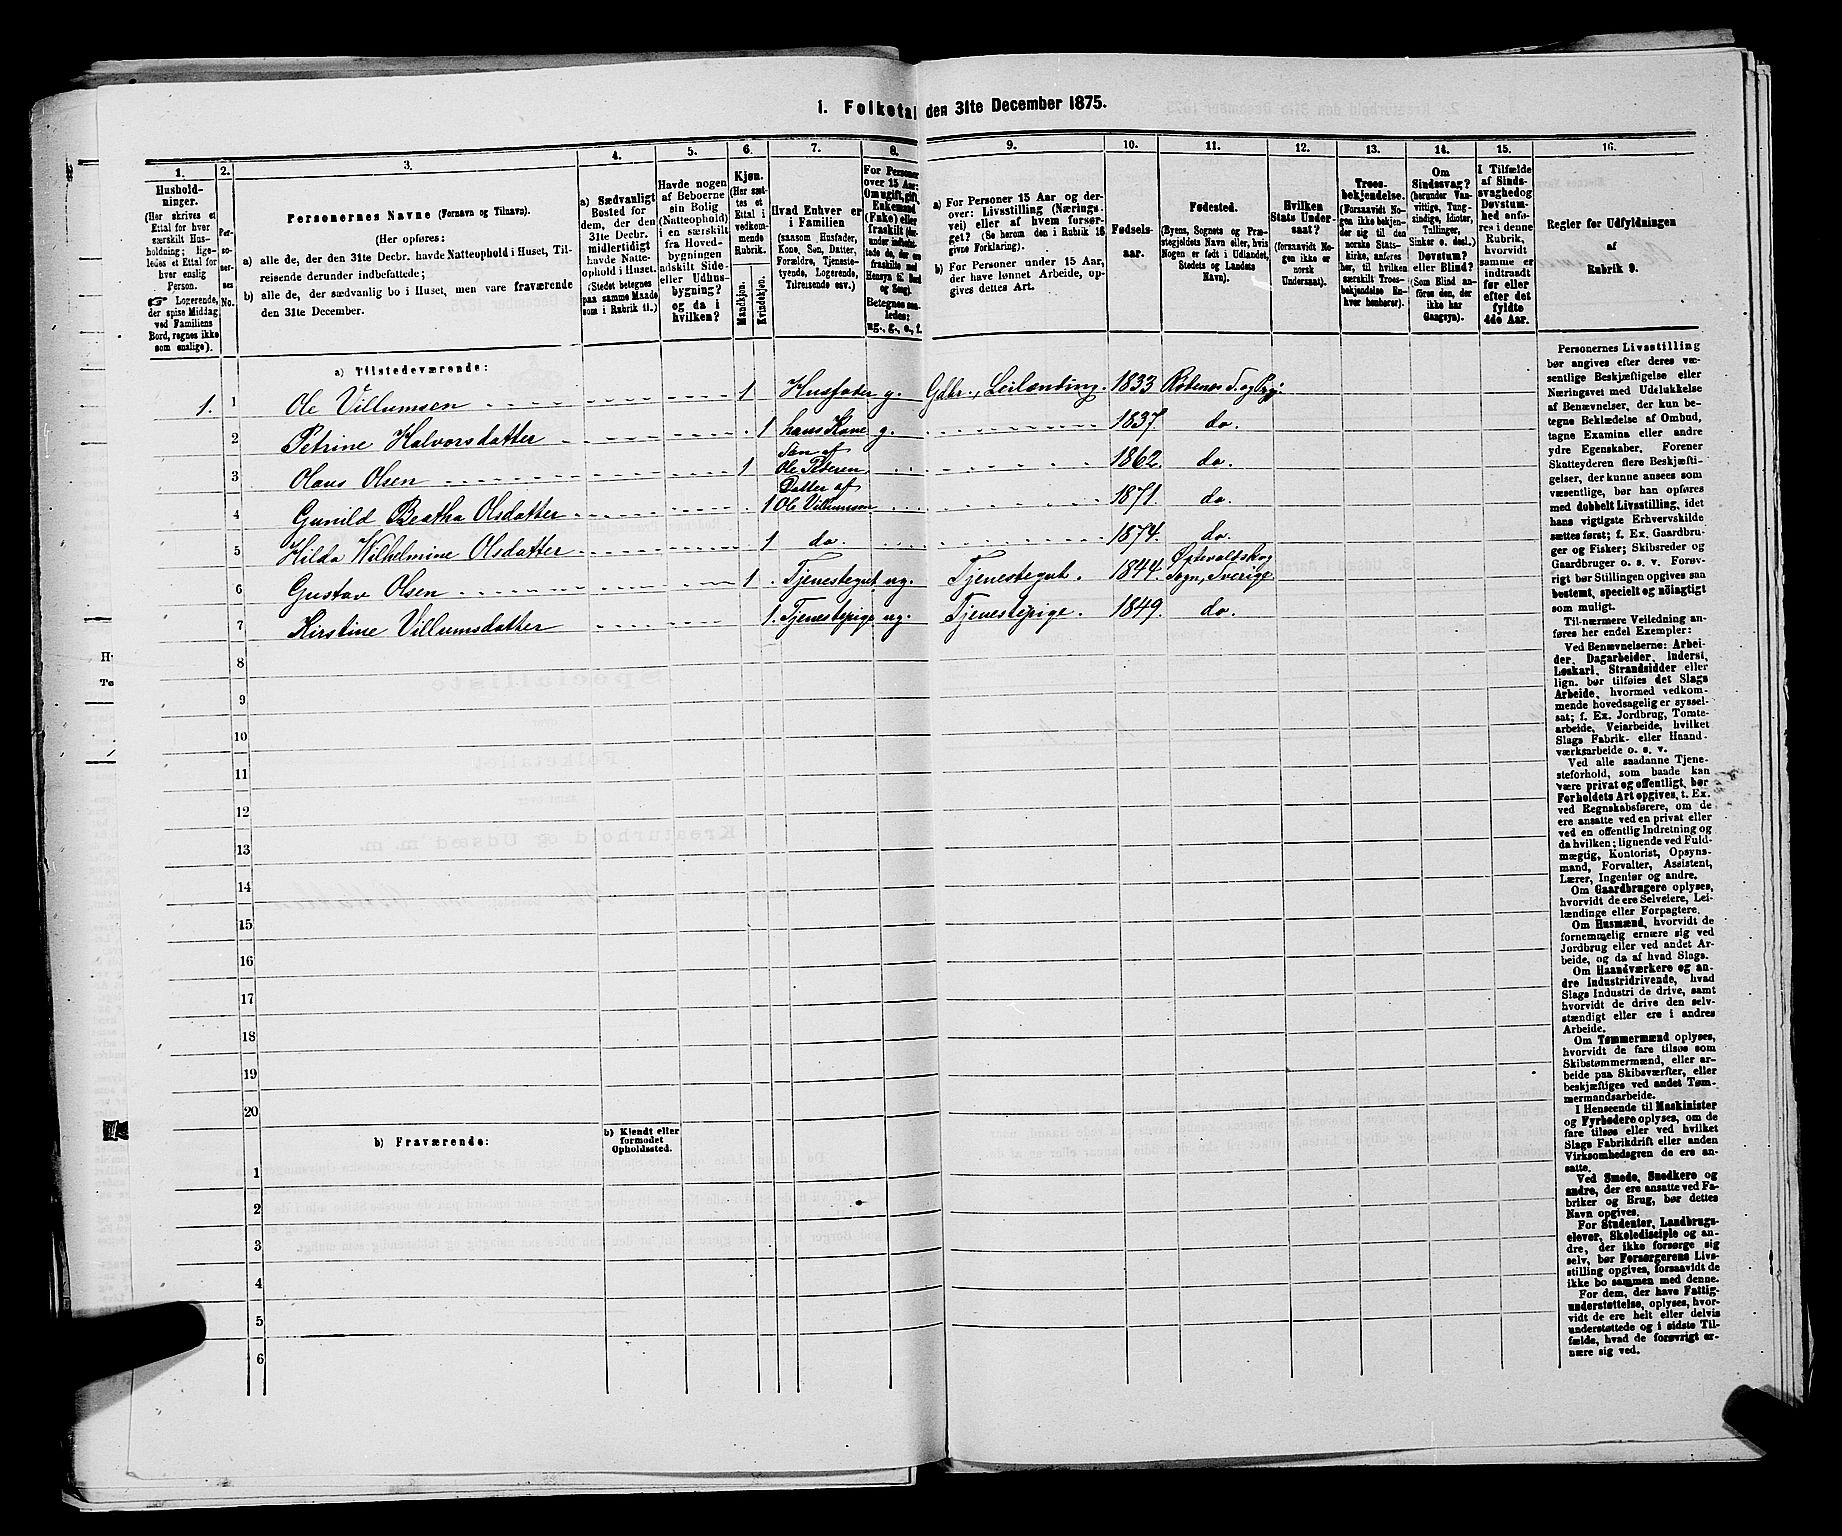 1. Folketal den 31te December 1875.
1. 2. 3. 4. 5. 6. 7. 8. 9. 10. 11. 12. 13. 14. 15. 16.
Hushold-
ninger.
(Her skrives et
Ettal for hver
særskilt Hus-
holdning; lige-
ledes et Ettal for
hver enslig
Person.
☞ Logerende,
der spise Middag
ved Familiens
Bord, regnes ikke
som enslige).
Per-
so-
ner-
nes
No.
Personernes Navne (Fornavn og Tilnavn).
(Her opføres:
a) alle de, der den 31te Decbr. havde Natteophold i Huset, Til-
reisende derunder indbefattede;
b) alle de, der sædvanlig bo i Huset, men vare fraværende
den 31te December.
a) Sædvanligt
Bosted for
dem, der den
31te Decbr.
midlertidigt
havde Natte-
ophold i Huset.
(Stedet betegnes
paa samme Maade
som i Rubrik 11.)
Havde nogen
af Beboerne
sin Bolig
(Natteophold)
i en særskilt
fra Hoved-
bygningen
adskilt Side-
eller Udhus-
bygning?
og da i
hvilken?
Kjøn.
(Her sæt-
tes et
Ettal i
vedkom-
mende
Rubrik.
Mandkjøn.
Kvindekjøn.
Hvad Enhver er
i Familien
(saasom Husfader,
Kone, Søn, Datter,
Forældre, Tjeneste-
tyende, Logerende,
Tilreisende osv.)
For Personer
over 15 Aar:
Om ugift, gift,
Enkemand
(Enke) eller
fraskilt
Betegnes saa-
ledes:
ug., g., e., f.
a) For Personer 15 Aar og der-
over: Livsstilling (Nærings-
vei) eller af hvem forsør-
get? (Se herom den i Rubrik 16
givne Forklaring).
b) For Personer under 15 Aar,
der have lønnet Arbeide, op-
gives dettes Art.
Fødsels-
aar.
Fødested.
(Byens, Sognets og Præ-
stegjeldets Navn eller, hvis
Nogen er født i Udlandet,
Stedets og Landets
Navn).
Hvilken
Stats Under-
saat?
(forsaavidt No-
gen ikke er
norsk
Undersaat).
Troes-
bekjendelse.
(Forsaavidt No-
gen ikke bekjen-
der sig til den
norske Stats-
kirke, anføres
her, til hvilken
særskilt Troes-
bekjendelse En-
hver henhører).
Om
Sindssvag?
(herunder Van-
vittige, Tung-
sindige, Idioter,
Tullinger,
Sinker o. desl.)
Døvstum?
eller Blind?
(Som Blind an-
føres den, der
ikke har
Gangsyn).
I Tilfælde
af Sinds-
svaghed og
Døvstum-
hed anfø-
res i denne
Rubrik,
hvorvidt
samme er
indtraadt
før eller
efter det
fyldte
4de Aar.
Regler for Udfyldningen
af
Rubrik 9.
a) Tilstedeværende:
1. 1 Ole Villumsen 1 Husfader g. Gdbr., Leilænding. 1833
2 Petrine Halvorsdatter 1 hans Kone g. 1837. do.
3 Olaus Olsen 1 Søn af Ole Pedersen 1862. do.
4 Gunild Beatha Olsdatter 1 Datter af Ole Villumsen 1871. do.
5 Hilda Wilhelmine Olsdatter 1 do. 1874. do.
6 Gustav Olsen 1 Tjenestegut ug. Tjenestegut. 1844. Sogn, Sverige
7 Kirstine Villumsdatter 1. Tjenestepige ug. Tjenestepige. 1849. do.
8
9
10
11
12
13
14
15
16
17
18
19
20
b) Fraværende:
b) Kjendt eller
formodet
Opholdssted.
1
2
3
4
5
6
Personernes Livsstilling
bør angives efter deres væ-
sentlige Beskjæftigelse eller
Næringsvei med Udelukkelse
af Benævnelser, der kun be-
tegne Beklædelse af Ombud,
tagne Examina eller andre
ydre Egenskaber. Forener
Skatteyderen flere Beskjæfti-
gelser, der kunne ansees som
væsentlige, bør han opføres
med dobbelt Livsstilling, idet
hans vigtigste Erhvervskilde
sættes først; f. Ex. Gaardbru-
ger og Fisker; Skibsreder og
Gaardbruger o. s. v. Forøv-
rigt bør Stillingen opgives saa
bestemt, specielt og nøiagtigt
som muligt.
Til nærmere Veiledning an-
føres her endel Exempler:
Ved Benævnelserne: Arbei-
der, Dagarbeider, Inderst,
Løskarl, Strandsidder eller
lign. bør tilføies det Slags
Arbeide, hvormed vedkom-
mende hovedsagelig er syssel-
sat; f. Ex. Jordbrug, Tomte-
arbeide, Veiarbeide, hvilket
Slags Fabrik- eller Haand-
værksarbeide o. s. v.
Ved alle saadanne Tjene-
steforhold, som baade kan
være privat og offentligt, bør
Forholdets Art opgives, t. Ex.
ved Regnskabsførere, om de
ere ansatte ved en privat eller
ved en offentlig Indretning og
da hvilken; lignende ved Fuld-
mægtig, Kontorist, Opsyns-
mand, Forvalter, Assistent,
Lærer, Ingeniør og andre.
Om Gaardbrugere oplyses,
hvorvidt de ere Selveiere, Lei-
lændinge eller Forpagtere.
Om Husmænd, hvorvidt de
fornemmelig ernære sig ved
Jordbrug eller ved andet Ar-
beide, og da af hvad Slags.
Om Haandværkere og an-
dre Industridrivende, hvad
Slags Industri de drive, samt
hvorvidt de drive den selv-
stændigt eller ere i andres
Arbeide.
Om Tømmermænd oplyses,
hvorvidt de fare tilsøs som
Skibstømmermænd, eller ar-
beide paa Skibsværfter, eller
beskjæftiges ved andet Tøm-
mermandsarbeide.
I Henseende til Maskinister
og Fyrbødere oplyses, om de
fare tilsøs eller ved hvilket
Slags Fabrikdrift eller anden
Virksomhedsgren de ere an-
satte.
Ved Smede, Snedkere og
andre, der ere ansatte ved Fa-
briker og Brug, bør dettes
Navn opgives.
For Studenter, Landbrugs-
elever, Skoledisciple og an-
dre, der ikke forsørge sig
selv, bør Forsørgerens Livs-
stilling opgives, forsaavidt de
ikke bo sammen med denne.
For dem, der have Fattig-
understøttelse, oplyses, hvor-
vidt de ere helt eller delvis
understøttede og i sidste Til-
fælde, hvad de forøvrigt er-
nære sig ved.